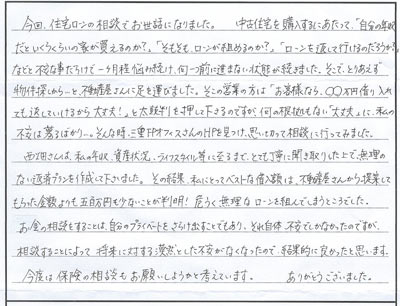 今回、住宅ローンの相談でお世話になりました。 中古住宅を購入するにあたって、「自分の年収
だといくらくらいの家が買えるのか?」、「そもそも、ローンが組めるのか?」、「ローンを返して行けるのだろうか?」
などと不安な事だらけで一ヶ月程悩み続け、何一つ前に進まない状態が続きました。そこで、とりあえず
物件探しから…と不動産屋さんに足を運びました。そこの営業の方は「お客様なら、○○万円借り入れ
ても返していけるから大丈夫!」と太鼓判を押して下さるのですが、何の根拠もない「大丈夫」に、私の
不安は募るばかり…。そんな時、三重FPオフィスさんのHPを見つけ、思いきって相談に行ってみました。
西畑さんは、私の年収、資産状況、ライフスタイル等に至るまで、とても丁寧に聞き取りした上で、無理の
ない返済プランを作成して下さいました。その結果、私にとってベストな借入額は、不動産屋さんから提案して
もらった金額よりも五百万円も少ないことが判明! 危うく無理なローンを組んでしまうところでした。
お金の相談をすることは、自分のプライベートをさらけ出すことでもあり、それ自体不安でしかなかったのですが、
相談することによって将来に対する漠然とした不安がなくなったので、結果的に良かったと思います。
今度は保険の相談もお願いしようかと考えています。 ありがとうございました。